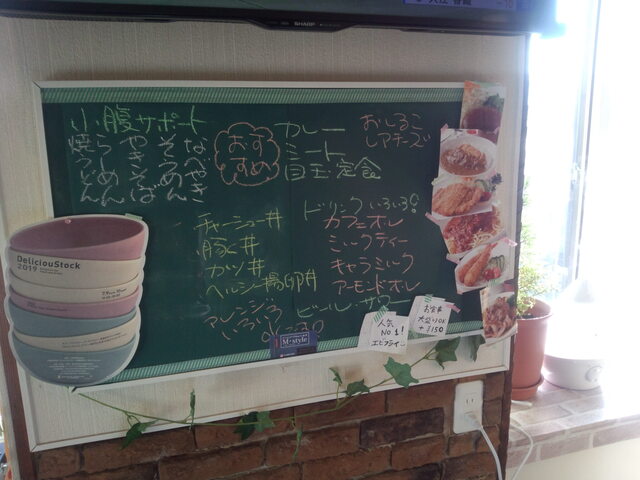 SHARP
小腹サポート
なべやき
そうめん
やきそば
らーめん
焼うどん
おすすめ
カレー
ミート
目玉定食
おしるこ
レアチーズ
チャーシュー丼
豚丼
カツ丼
ヘルシー揚卵丼
アレンジ
いろいろ
ドリンクいろいろ
カフェオレ
ミルクティー
キャラミルク
アーモンドオレ
ビール・サワー
DeliciouStock
2019
M-style
人気
No1!
エビフライ
お食事
大盛りOK
+¥150